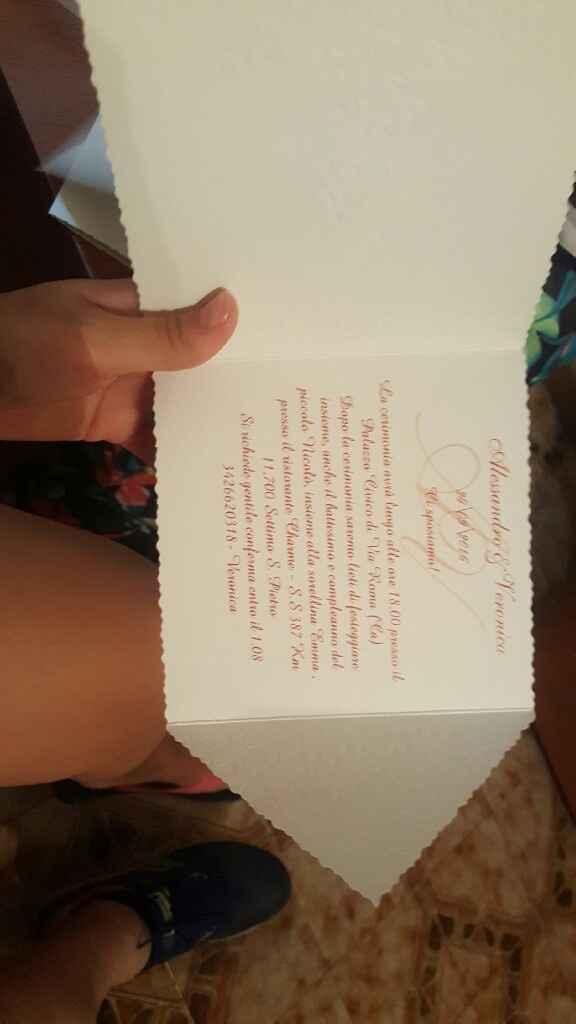 Alessandro & Veronica
Ci sposiamo!
La cerimonia avrà luogo alle ore 18.00 presso il
Palazzo Civico di Via Roma (Ca)
Dopo la cerimonia saremo lieti di festeggiare
insieme, anche il battesimo e compleanno del
piccolo Nicolò, insieme alla sorellina Emma,
presso il ristorante Charme - S.S 387 Km
11,700 Settimo S. Pietro
Si richiede gentile conferma entro il 1.08
3426620318 - Veronica